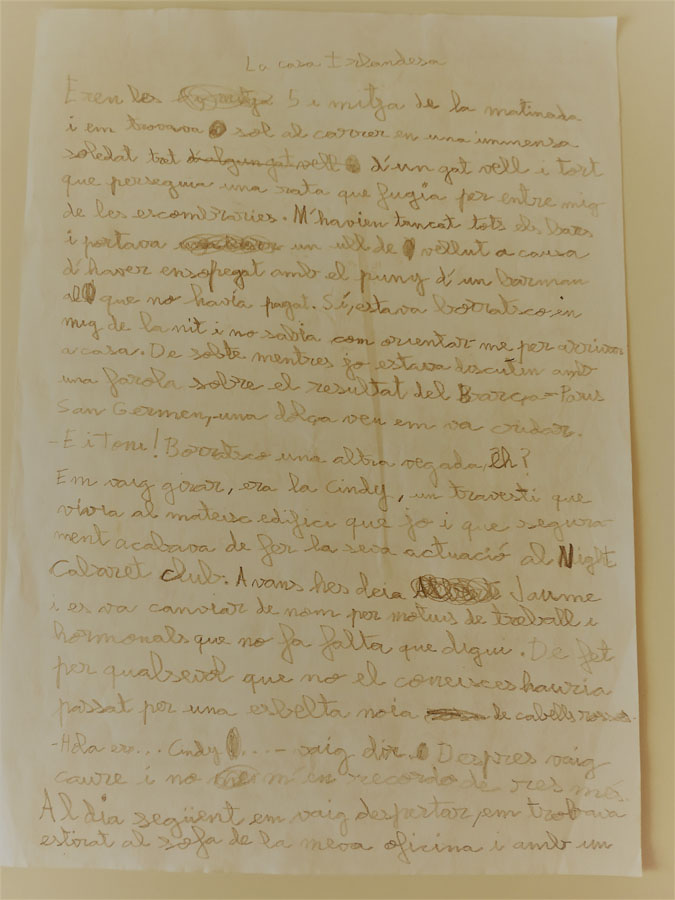 La casa Irlandesa
Eren les 5 i mitja de la matinada
i em trovava sol al carrer en una immensa
soledat tat d'un gat vell i tort
que perseguia una rata que fugia per entre mig
de les escombraries. M'havien tancat tots els bars
i portava un ull de vellut a causa
d'haver ensopegat amb el puny d'un barman
al que no havia pagat. Sí, estava borratxo en
mig de la nit i no sabia com orientar me per arrivar
a casa. De sobte mentres jo estava discutin amb
una farola sobre el resultat del Barça - Paris
San Germen, una dolça veu em va cridar.
- E i Toni! Borratxo una altra vegada, eh?
Em vaig girar, era la Cindy, un travesti que
vivia al mateix edifici que jo i que segura-
ment acabava de fer la seva actuació al Night
Cabaret Club. Avans hes deia Jaume
i es va canviar de nom per motius de treball i
hormonals que no fa falta que digui. De fet
per qualsevol que no el coneisces hauria
passat per una esbelta noia de cabells rossos.
- Hola er... Cindy ... - vaig dir. Despres vaig
caure i no m'en recordo de res més.
Al dia següent em vaig despertar, em trobava
estirat al sofa de la meva oficina i amb un